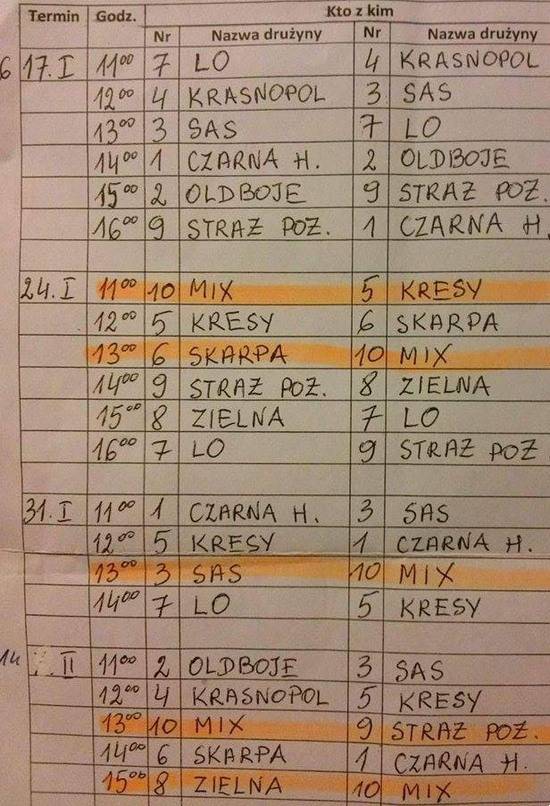 Termin Godz. Kto z kim
Nr Nazwa drużyny Nr Nazwa drużyny
6 17.I 11⁰⁰ 7 LO 4 KRASNOPOL
12⁰⁰ 4 KRASNOPOL 3 SAS
13⁰⁰ 3 SAS 7 LO
14⁰⁰ 1 CZARNA H. 2 OLDBOJE
15⁰⁰ 2 OLDBOJE 9 STRAŻ POŻ.
16⁰⁰ 9 STRAŻ POŻ. 1 CZARNA H.
24.I 11⁰⁰ 10 MIX 5 KRESY
12⁰⁰ 5 KRESY 6 SKARPA
13⁰⁰ 6 SKARPA 10 MIX
14⁰⁰ 9 STRAŻ POŻ. 8 ZIELNA
15⁰⁰ 8 ZIELNA 7 LO
16⁰⁰ 7 LO 9 STRAŻ POŻ
31.I 11⁰⁰ 1 CZARNA H. 3 SAS
12⁰⁰ 5 KRESY 1 CZARNA H.
13⁰⁰ 3 SAS 10 MIX
14⁰⁰ 7 LO 5 KRESY
14 II 11⁰⁰ 2 OLDBOJE 3 SAS
12⁰⁰ 4 KRASNOPOL 5 KRESY
13⁰⁰ 10 MIX 9 STRAŻ POŻ.
14⁰⁰ 6 SKARPA 1 CZARNA H.
15⁰⁰ 8 ZIELNA 10 MIX